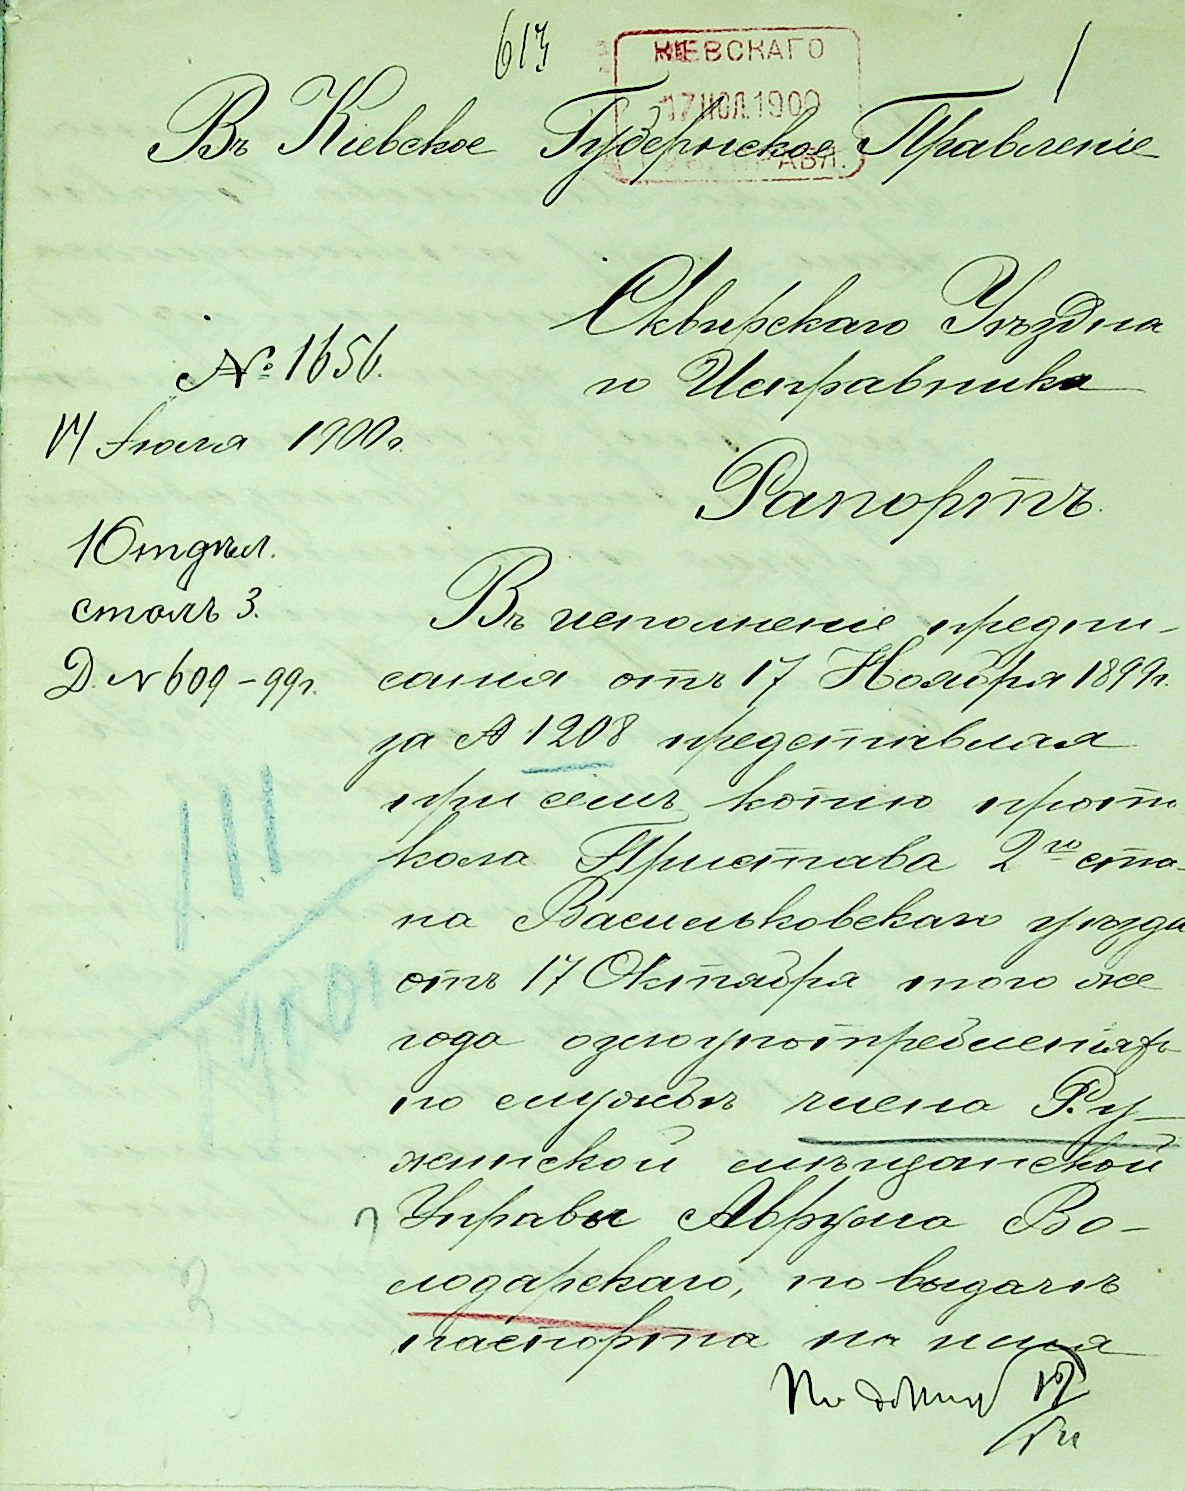 613
1
КІЕВСКАГО
17 ІЮЛ.1900
ПРАВЛ.
Въ Кіевское Губернское Правленіе
Сквирскаго Уѣздна
го Исправника
№ 1656.
14 Іюля 1900г.
Рапортъ.
1 Отдѣл.
столъ 3.
Д. № 609-99г.
Въ исполненіе предпи-
санія отъ 17 Ноября 1899г.
за № 1208 представляя
при семъ копію прото
кола Пристава 2го ста-
на Васильковскаго уѣзда
отъ 17 Октября того же
года о злоупотребленіяхъ
по службѣ члена Ру-
жинской мѣщанской
Управы Аврума Во-
лодарскаго, по выдачѣ
паспорта на имя